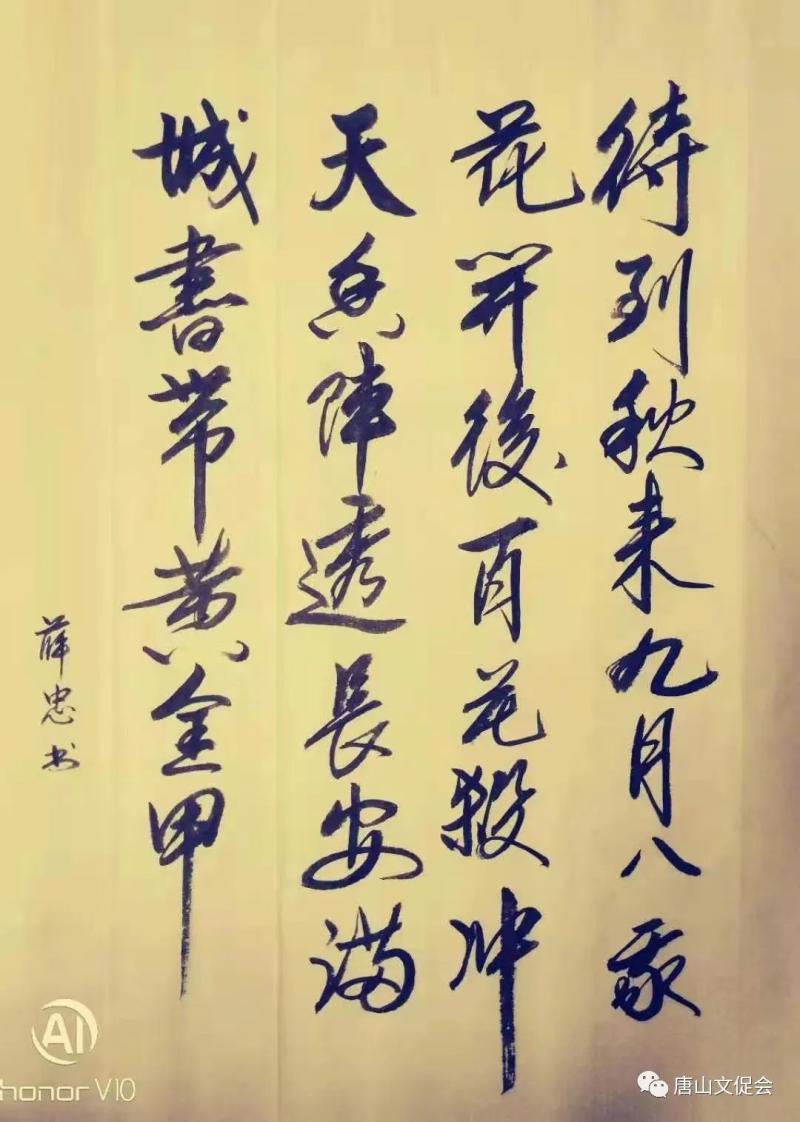 待到秋来九月八我
花開後百花殺冲
天香陣透長安满
城書带黄金甲
薛忠书
AI
honor V10
唐山文促会